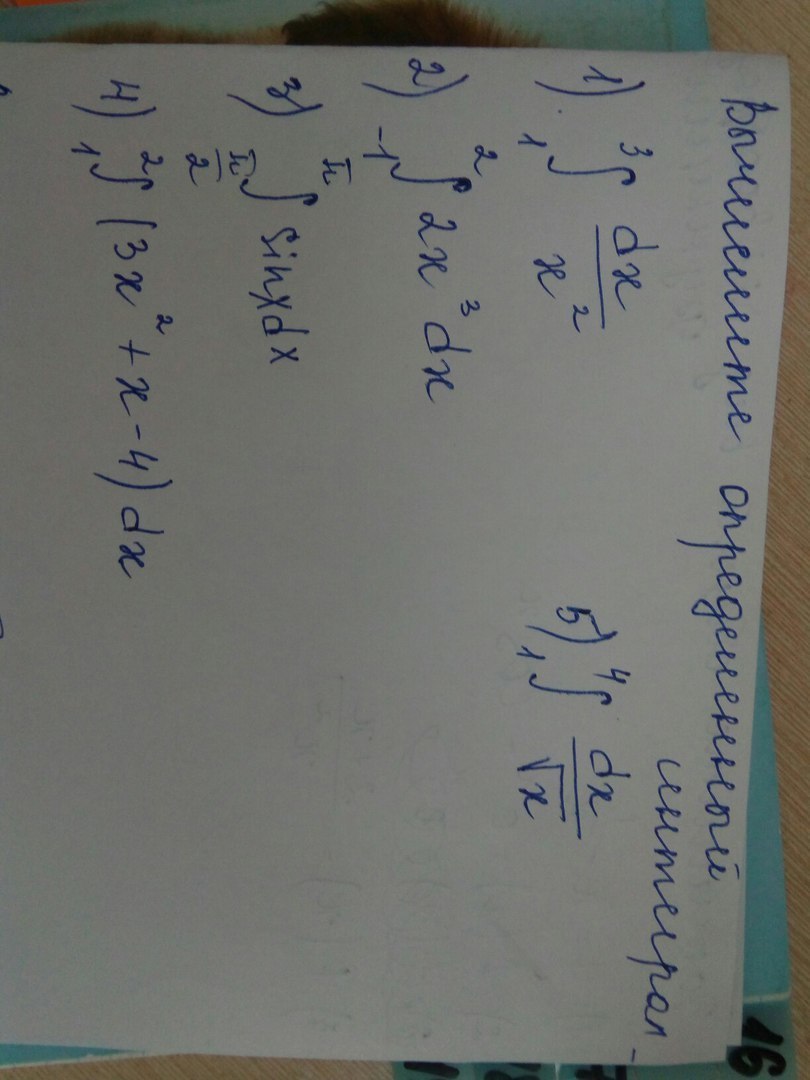 Вычислите определенный
интеграл-
1) ₁∫³ dx/x²
2) ₋₁∫² 2x³ dx
3) π/2∫π sinxdx
4) ₁∫² (3x² + x - 4) dx
5) ₁∫⁴ dx/√x
16